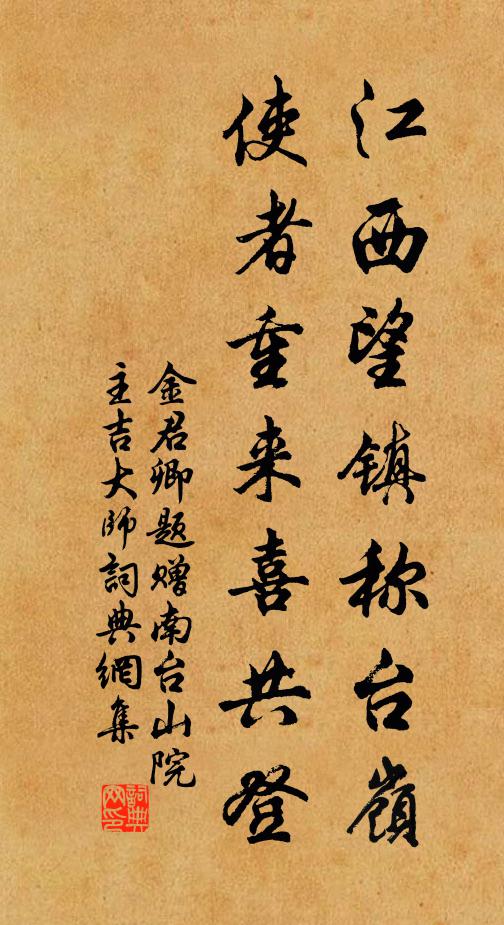 江西望镇称台嶺
使者重来喜共登
金君卿题赠南台山院
主吉大师詞典網集
詞典
网印